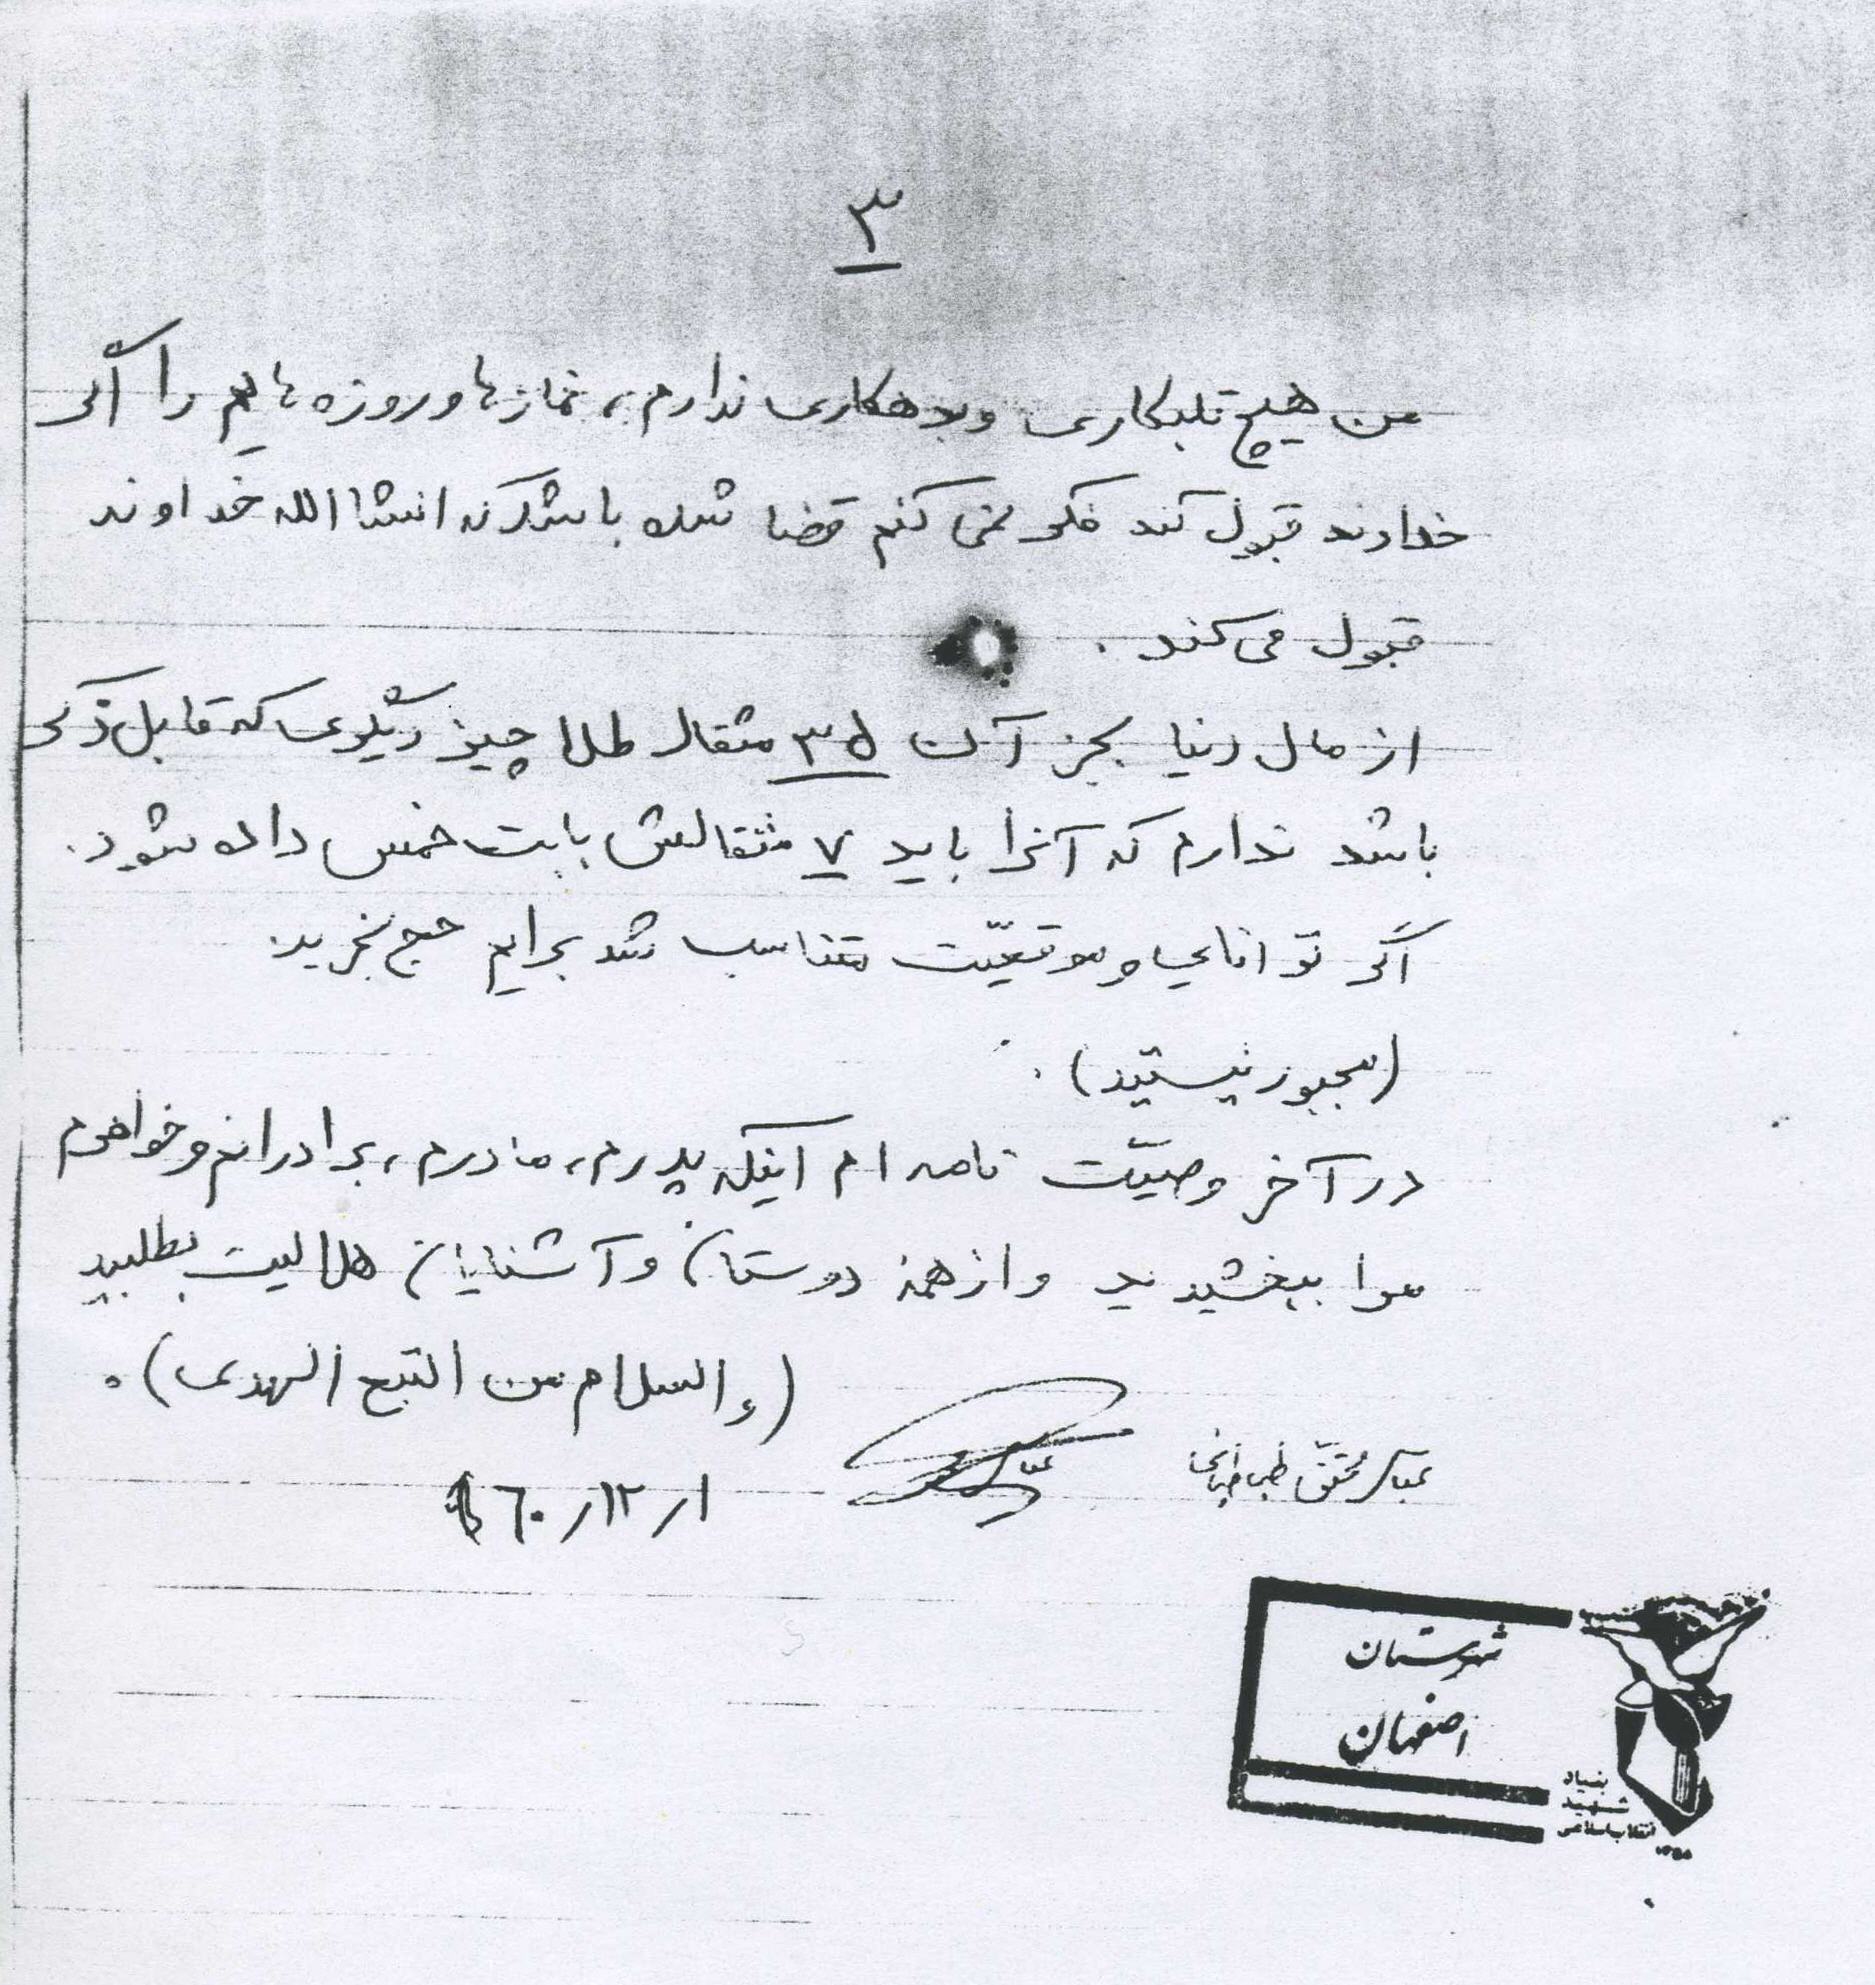 ۳
من هیچ تلبکاری و بدهکاری ندارم، نمازها و روزه هایم را اگر
خداوند قبول کند فکر نمی کنم قضا شده باشد که انشاالله خداوند
قبول می کند.
از مال دنیا بجز آن ۳۵ مثقال طلا چیز دیگری که قابل ذکر
باشد ندارم که آنرا باید ۷ مثقالش بابت خمس داده شود.
اگر توانایی و موقعیّت متناسب شد برایم حج بخرید.
(مجبور نیستید).
در آخر وصیّت نامه ام اینکه پدرم، مادرم، برادرانم و خواهرم
مرا ببخشیدید و از همهٔ دوستان و آشنایان هلالیت بطلبید
(والسلام من التبع الهدی).
عباس محقق طباطبائی
۱ر۱۲ر۶۰
شهرستان
اصفهان
بنیاد
شهید
انقلاب اسلامی